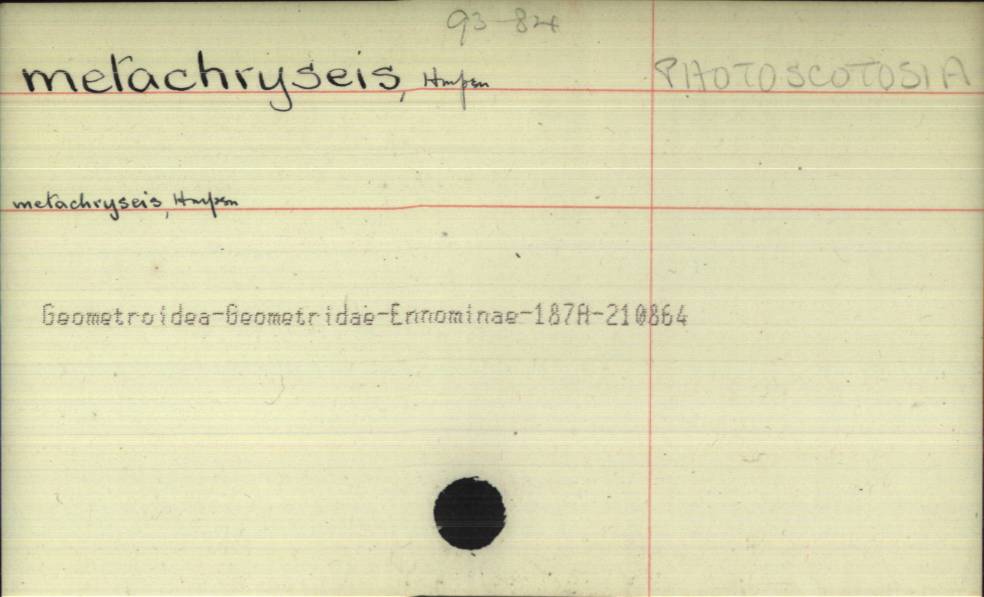 93-84
metachryseis, Hmpsn PHOTOSCOTOSIA
metachryseis, Hmpsn
Geometroidea-Geometridae-Ennominae-187A-210864